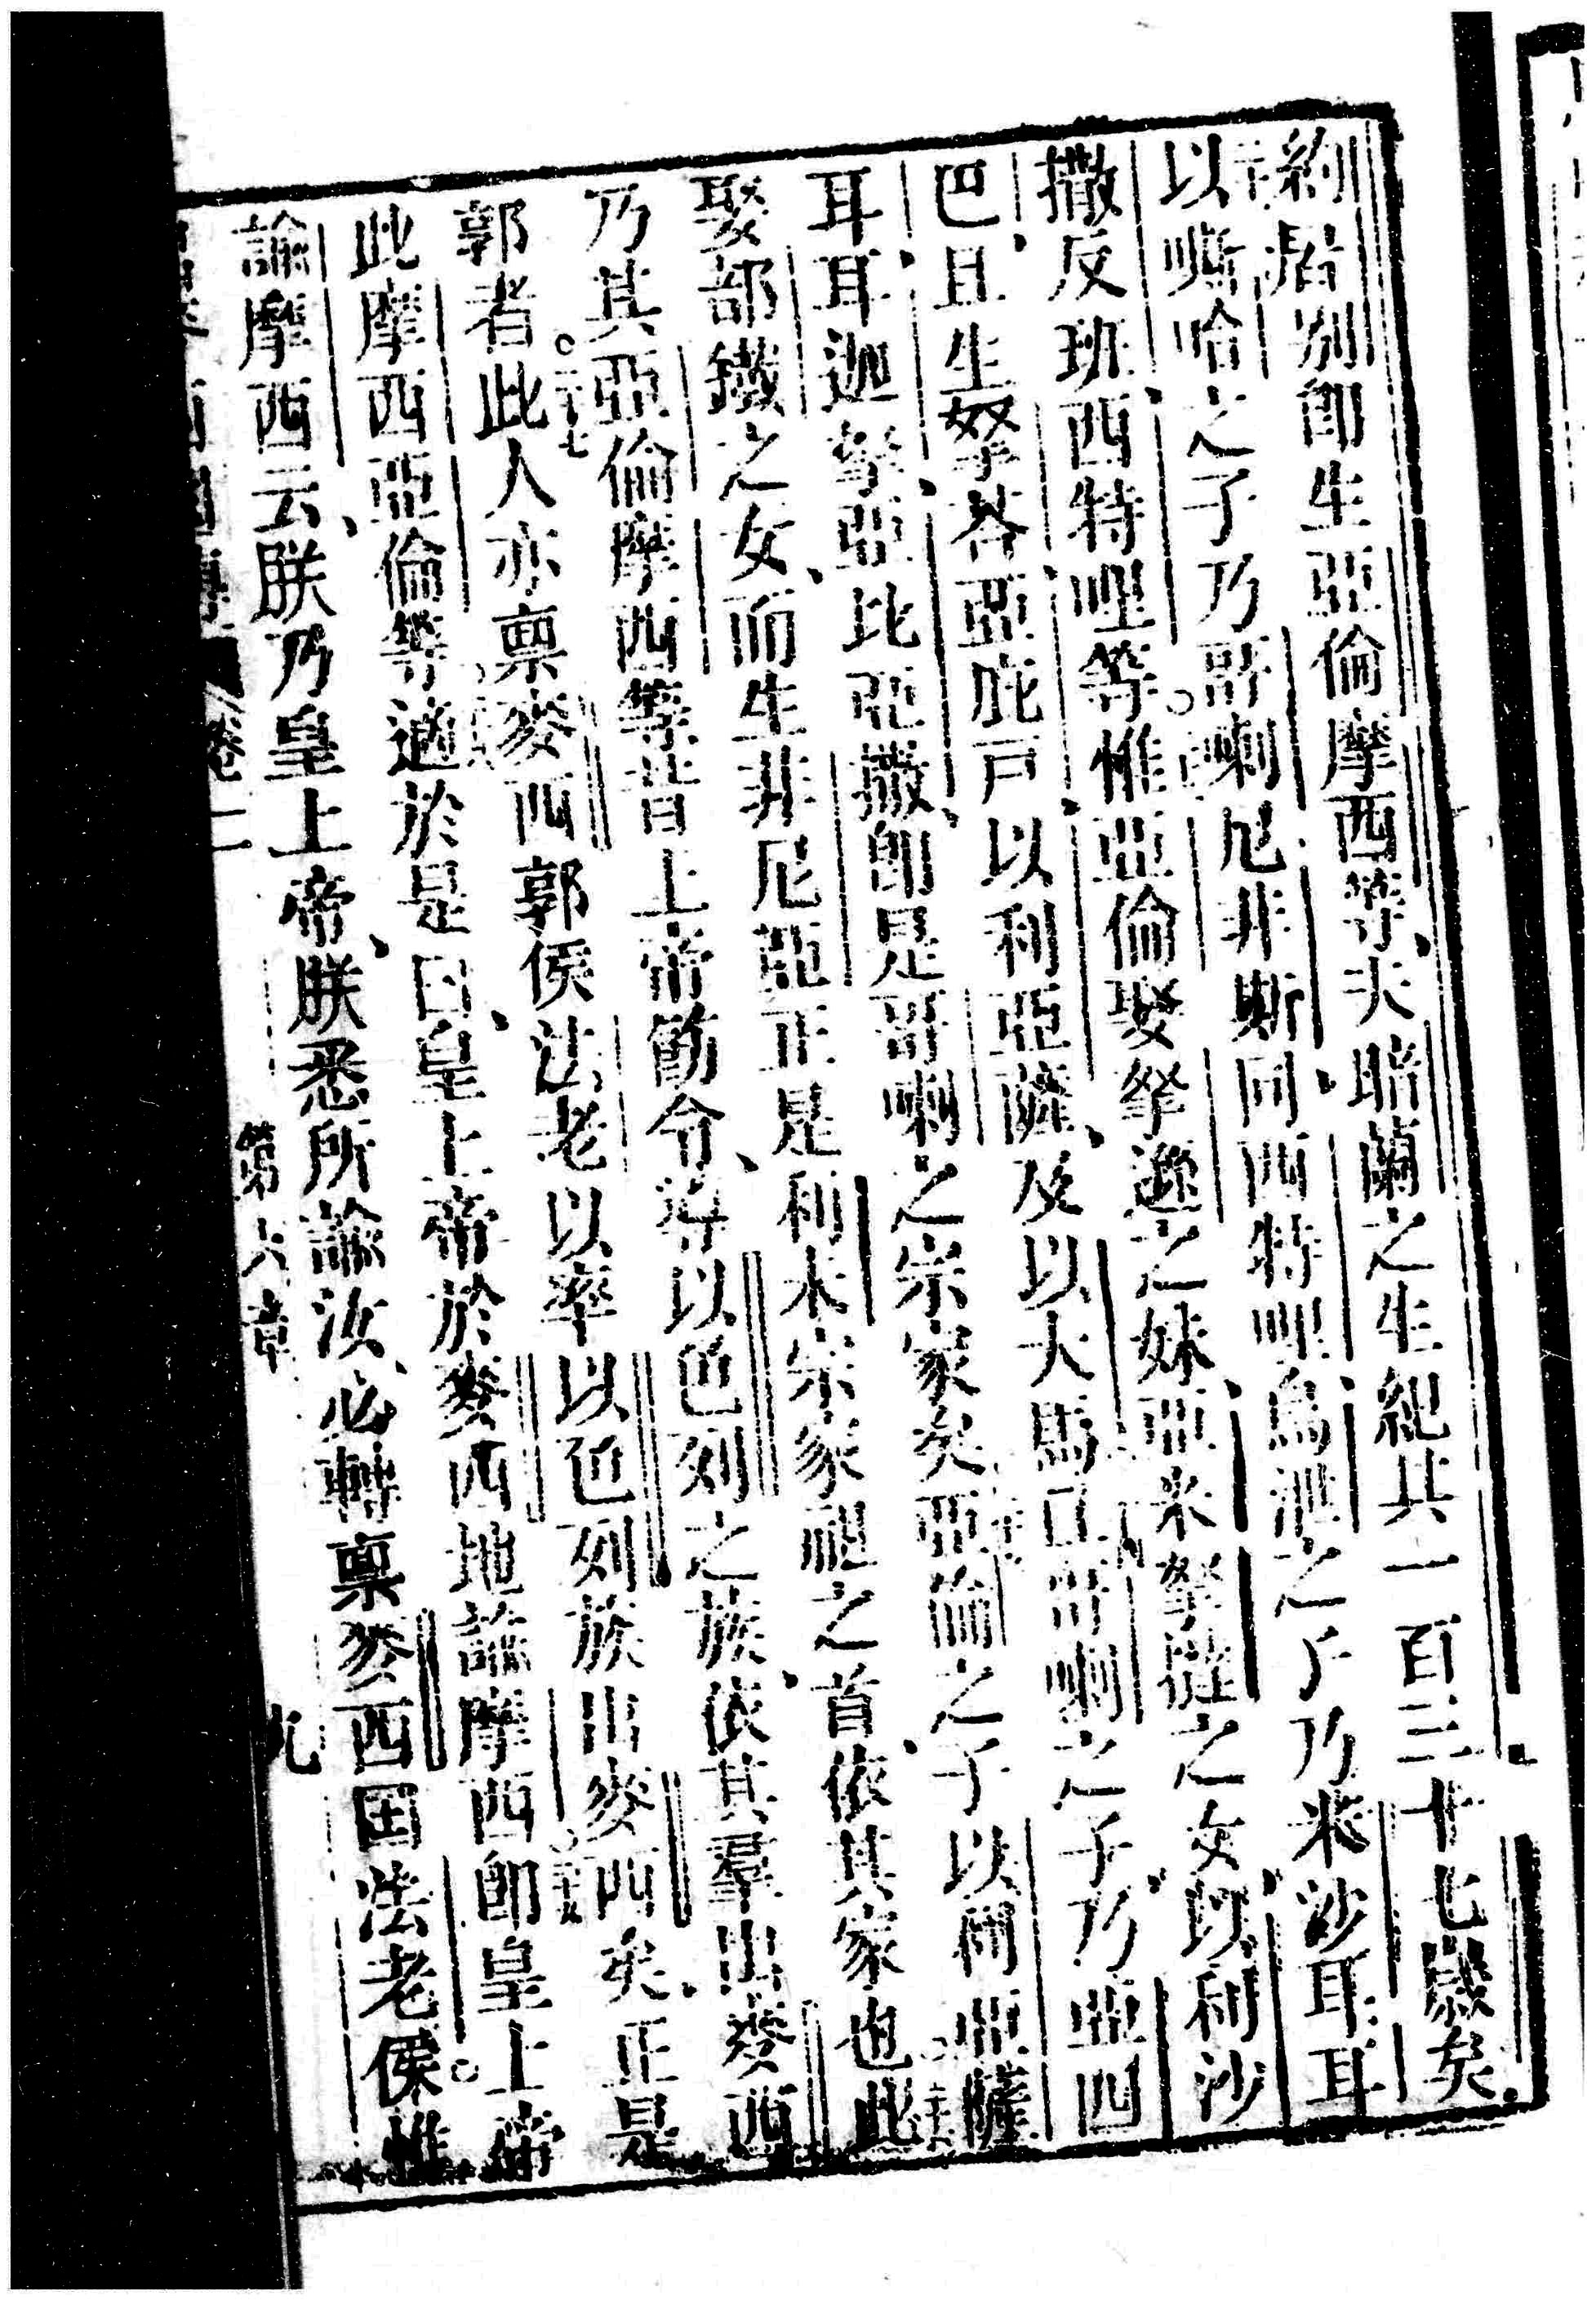 約居別卽生亞倫摩西等、夫暗蘭之生紀共一百三十七歲矣、
以嘶哈之子乃哥喇尼非斯同西特哩、烏泄之子乃米沙耳耳
撒反班西特哩等。惟亞倫娶拏遜之妹、亞米拏撻之女、以利沙
巴、且生拏荅亞庇戸以利亞薩、及以大馬口哥喇之子、乃亞四
耳耳迦拏、亞比亞撒、卽是哥喇之宗家矣亞倫之子以利亞薩
娶部鐵之女、而生非尼亞正是利未宗家祖之首、依其家也此
乃其亞倫摩西等昔上帝飭令、將以色列之族、依其羣出麥西
郭者。二十七此人亦禀麥西郭侯法老以率以色列族出麥西矣、正是
此摩西亞倫等、適於是日、皇上帝於麥西地諭摩西卽皇上帝
諭摩西云、朕乃皇上帝、朕悉所諭汝、必轉禀麥西国法老侯。惟
卷二 第六章 九